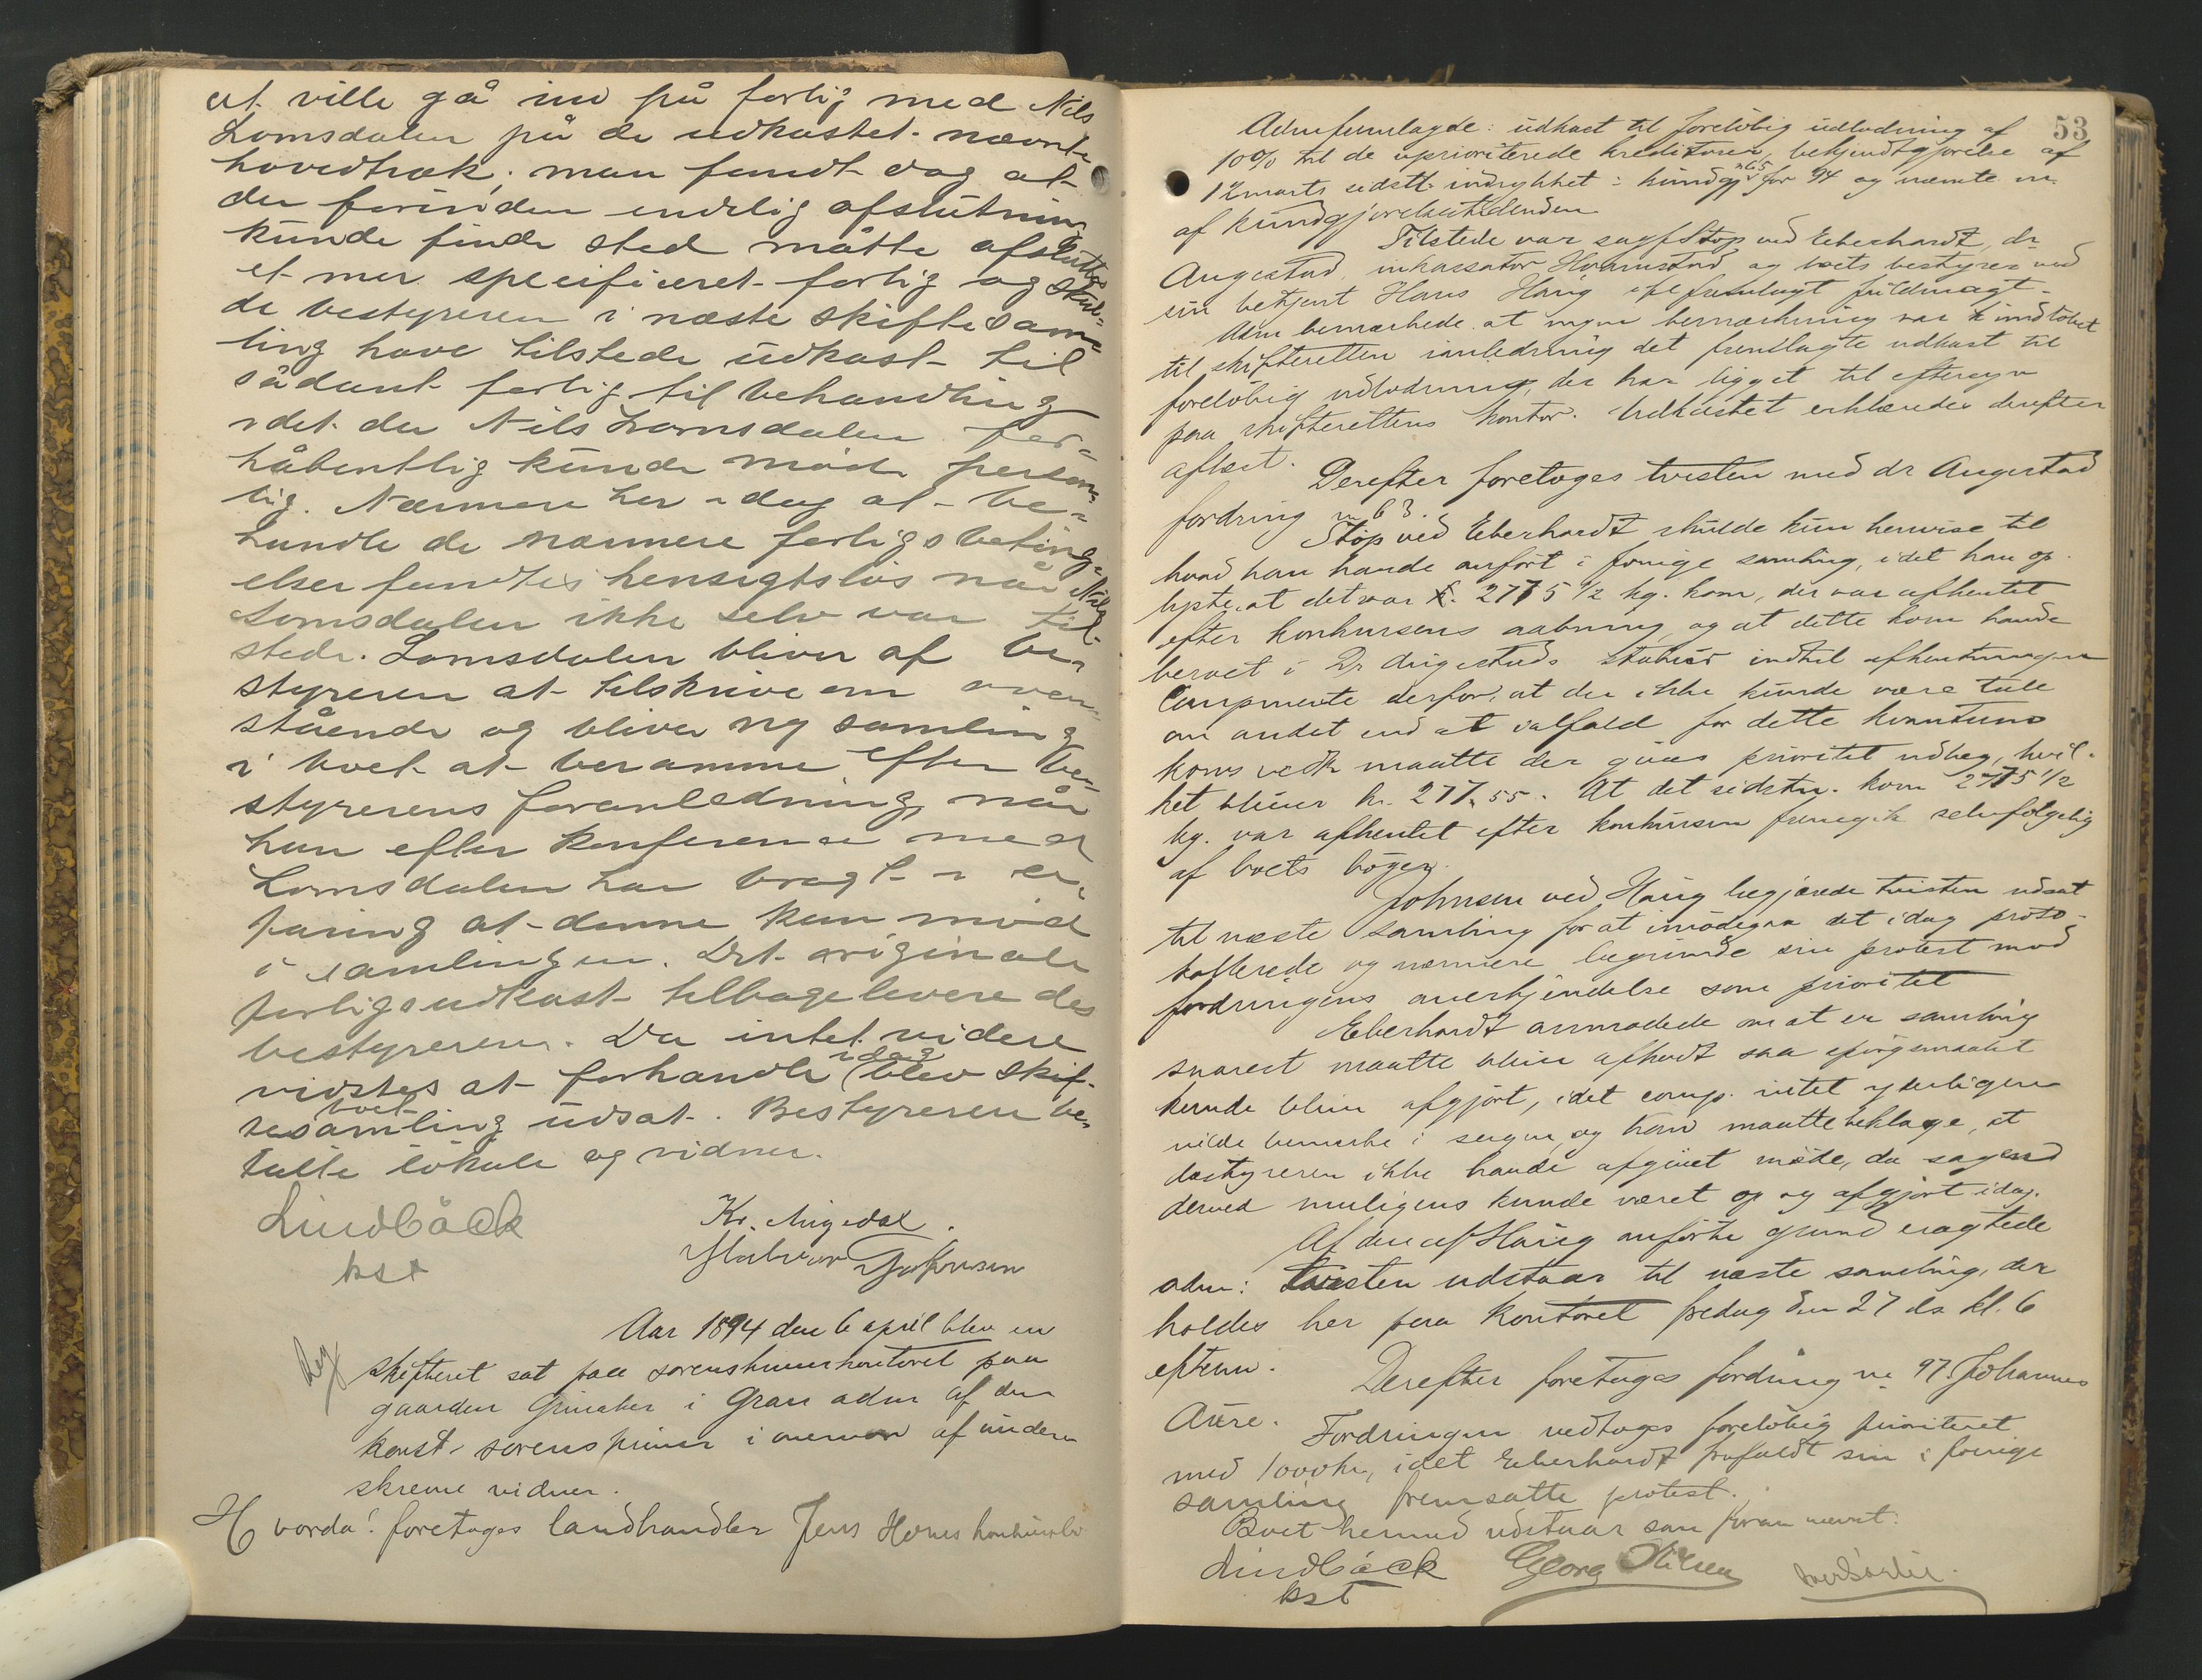 at ville gå ind på forlig med Nils
Lomsdalen på de udkastet nævnte
hovedtræk; man fandt dog at
der forinden endelig afslutning
kunde finde sted måtte afsluttes
et mer specificeret forlig og skul-
de bestyreren i næste skiftesam-
ling have tilstede udkast til
sådant forlig til behandling
idet da Nils Lomsdalen for-
håbentlig kunde møde person-
lig. Nærmere her idag at be-
handle de nærmere forligsbeting-
elser fandtes hensigtsløs når Nils
Lomsdalen ikke selv var til-
stede. Lomsdalen bliver af be-
styreren at tilskrive om oven-
stående og bliver ny samling
i boet at beramme efter be-
styrerens foranledning, når
han efter konferense med
Lomsdalen har bragt i er-
faring at denne kan møde
i samlingen. Det originale
forligsudkast tilbageleveredes
bestyreren. Da intet videre
vidstes at forhandle idag blev skif-
tesamling i boet udsat. Bestyreren be-
talte lokale og vidner.
Lindbäck
kst
Kr. Augedal.
Halvor Gulbrandsen
Aar 1894 den 6 april blev en
skifteret sat paa sorenskriverkontoret paa
gaarden Grinaker i Gran adm af den
konst. sorenskriver i overvær af under-
skrevne vidner.
Hvorda: foretoges landhandler Jens Hovs konkursbo
53
Adm fremlagde: udkast til foreløbig udlodning af
10% til de uprioriterede kreditorer, bekjendtgjørelse af
12 marts sidstl. indrykket i kundgj. no 65 for 94 og nævnte nr.
af kundgjørelsestidenden
Tilstede var sagf Stop ved Eberhardt, dr
Augestad, inkassator Hammerstad og boets bestyrer ved
sin betjent Hans Haug efl fremlagt fuldmagt.
Adm bemærkede at ingen bemærkning var indløbet
til skifteretten i anledning det fremlagte udkast til
foreløbig udlodning, der har ligget til eftersyn
paa skifterettens kontor. Udkastet erklæredes derefter
aflæst.
Derefter foretoges tvisten med dr Augestad
fordring no 63.
Stop ved Eberhardt skulde kun henvise til
hvad han havde anført i forrige samling, idet han op-
lyste, at det var 2775 1/2 kg. korn, der var afhentet
efter konkursens aabning, og at dette korn havde
beroet i Dr Augestads stabur indtil afhentningen
Comp mente derfor, at der ikke kunde være tale
om andet end at ialfald for dette kvantum
korns vedk maatte der gives prioritet udlæg, hvil-
ket bliver kr. 277.55. At det sidstn. korn 2775 1/2
kg. var afhentet efter konkursen fremgik selvfølgelig
af boets bøger.
Johnsen ved Haug begjærede tvisten udsat
til næste samling for at imødegaa det idag proto-
kollerede og nærmere begrunde sin protest mod
fordringens anerkjendelse som prioritet
Eberhardt anmodede om at en samling
snarest maatte blive afholdt saa spørgsmaalet
kunde blive afgjort, idet comp. intet yderligere
vilde bemærke i sagen, og han maatte beklage, at
bestyreren ikke havde afgivet møde, da sagen
derved muligens kunde været op og afgjort idag.
Af den af Haug anførte grund eragtede
adm: Tvisten udstaar til næste samling, der
holdes her paa kontoret fredag den 27 ds kl. 6
efterm.
Derefter foretoges fordring no 97. Johannes
Aure.
Fordringen vedtoges foreløbig prioriteret
med 1000 kr, idet Eberhardt frafaldt sin i forrige
samling fremsatte protest.
Boet hermed udstaar som foran nævnt.
Lindbäck
kst
Georg Nilsen